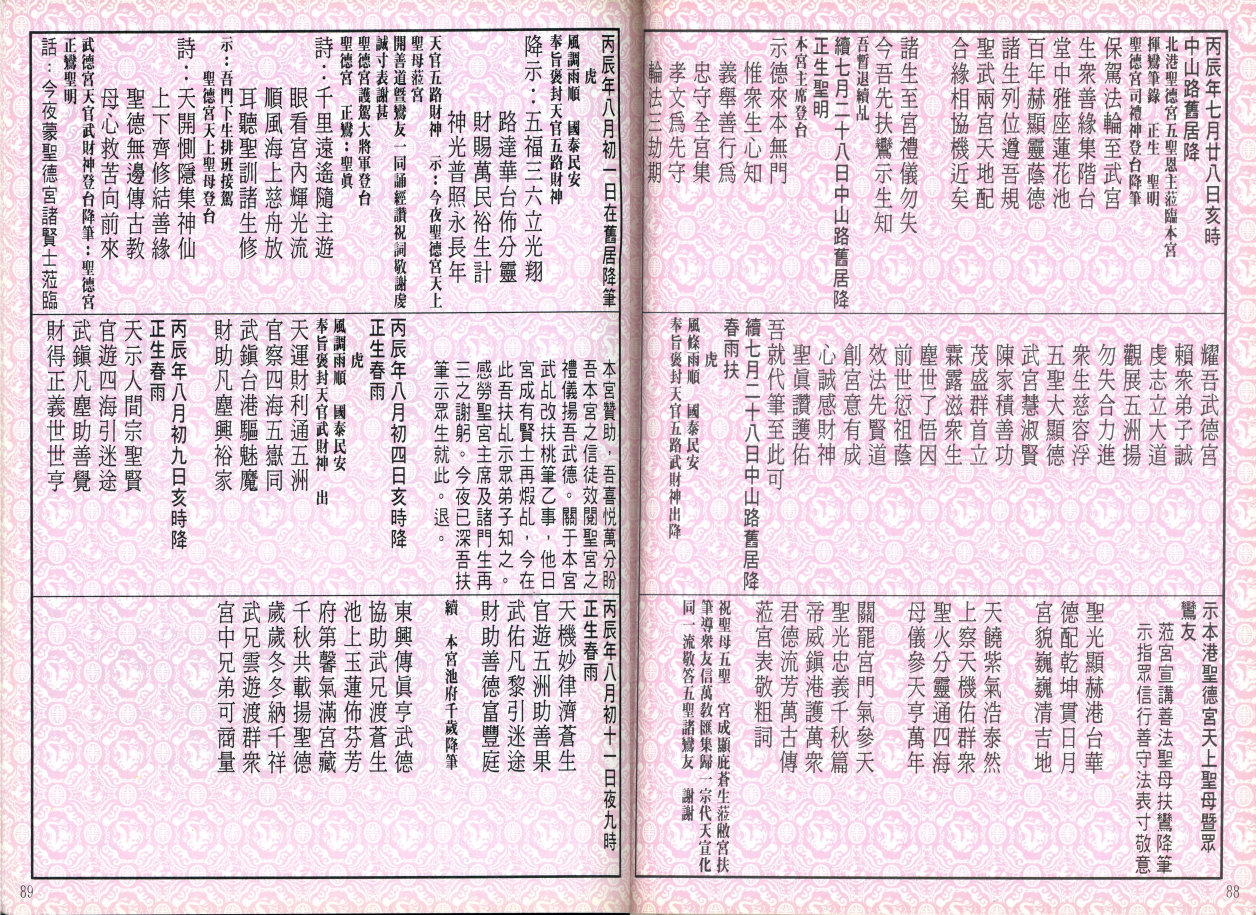 丙辰年七月廿八日亥時
中山路舊居降
北港聖德宮五聖恩主蒞臨本宮
揮鸞筆錄　正生　聖明
聖德宮司禮神登台降筆
保駕法輪至武宮
生衆善緣集階台
堂中雅座蓮花池
百年赫顯靈蔭德
諸生列位遵吾規
聖武兩宮天地配
合緣相協機近矣
諸生至宮禮儀勿失
今吾先扶鸞示生知
吾暫退續乩
續七月二十八日中山路舊居降
正生聖明
本宮主席登台
示德來本無門
惟衆生心知
義舉善行爲
忠守全宮集
孝文爲先守
輪法三劫期
耀吾武德宮
賴衆弟子誠
虔志立大道
觀展五洲揚
勿失合力進
衆生慈容浮
五聖大顯德
武宮慧淑賢
陳家積善功
茂盛群首立
霖露滋衆生
塵世了悟因
前世愆祖蔭
效法先賢道
創宮意有成
心誠感財神
聖眞讚護佑
吾就代筆至此可
續七月二十八日中山路舊居降
春雨扶
虎
風條雨順　國泰民安
奉旨褒封天官五路武財神出降
示本港聖德宮天上聖母暨眾
鸞友
蒞宮宣講善法聖母扶鸞降筆
示指眾信行善守法表寸敬意
聖光顯赫港台華
德配乾坤貫日月
宮貌巍巍清吉地
天饒紫氣浩泰然
上察天機佑群衆
聖火分靈通四海
母儀參天亨萬年
關罷宮門氣參天
聖光忠義千秋篇
帝威鎮港護萬衆
君德流芳萬古傳
蒞宮表敬粗詞
祝聖母五聖　宮成顯庇蒼生蒞敝宮扶
筆導衆友信萬敎匯集歸一宗代天宣化
同一流敬答五聖諸鸞友　謝謝
88
丙辰年八月初一日在舊居降筆
虎
風調雨順　國泰民安
奉旨褒封天官五路財神
降示：五福三六立光翔
路達華台佈分靈
財賜萬民裕生計
神光普照永長年
天官五路財神　示：今夜聖德宮天上
聖母蒞宮
開善道暨鸞友一同誦經讚祝詞敬謝虔
誠寸表謝甚
聖德宮護駕大將軍登台
聖德宮　正鸞：聖眞
詩：千里遠遙隨主遊
眼看宮內輝光流
順風海上慈舟放
耳聽聖訓諸生修
示：吾門下生排班接駕
聖德宮天上聖母登台
詩：天開惻隱集神仙
上下齊修結善緣
聖德無邊傳古教
母心救苦向前來
武德宮天官武財神登台降筆：聖德宮
正鸞聖明
話：今夜蒙聖德宮諸賢士蒞臨
本宮贊助，吾喜悅萬分盼
吾本宮之信徒效閱聖宮之
禮儀揚吾武德。關于本宮
武乩改扶桃筆乙事，他日
宮成有賢士再煆乩，今在
此吾扶乩示眾弟子知之。
感勞聖宮主席及諸門生再
三之謝躬。今夜已深吾扶
筆示眾生就此。退。
丙辰年八月初四日亥時降
正生春雨
虎
風調雨順　國泰民安
奉旨褒封天官武財神　出
天運財利通五洲
官察四海五嶽同
武鎮台港驅魅魔
財助凡塵興裕家
丙辰年八月初九日亥時降
正生春雨
天示人間宗聖賢
官遊四海引迷途
武鎮凡塵助善覺
財得正義世世亨
丙辰年八月初十一日夜九時
正生春雨
天機妙律濟蒼生
官遊五洲助善果
武佑凡黎引迷途
財助善德富豐庭
續　本宮池府千歲降筆
東興傳眞亨武德
協助武兄渡蒼生
池上玉蓮佈芬芳
府第馨氣滿宮藏
千秋共載揚聖德
歲歲冬冬納千祥
武兄雲遊渡群衆
宮中兄弟可商量
89